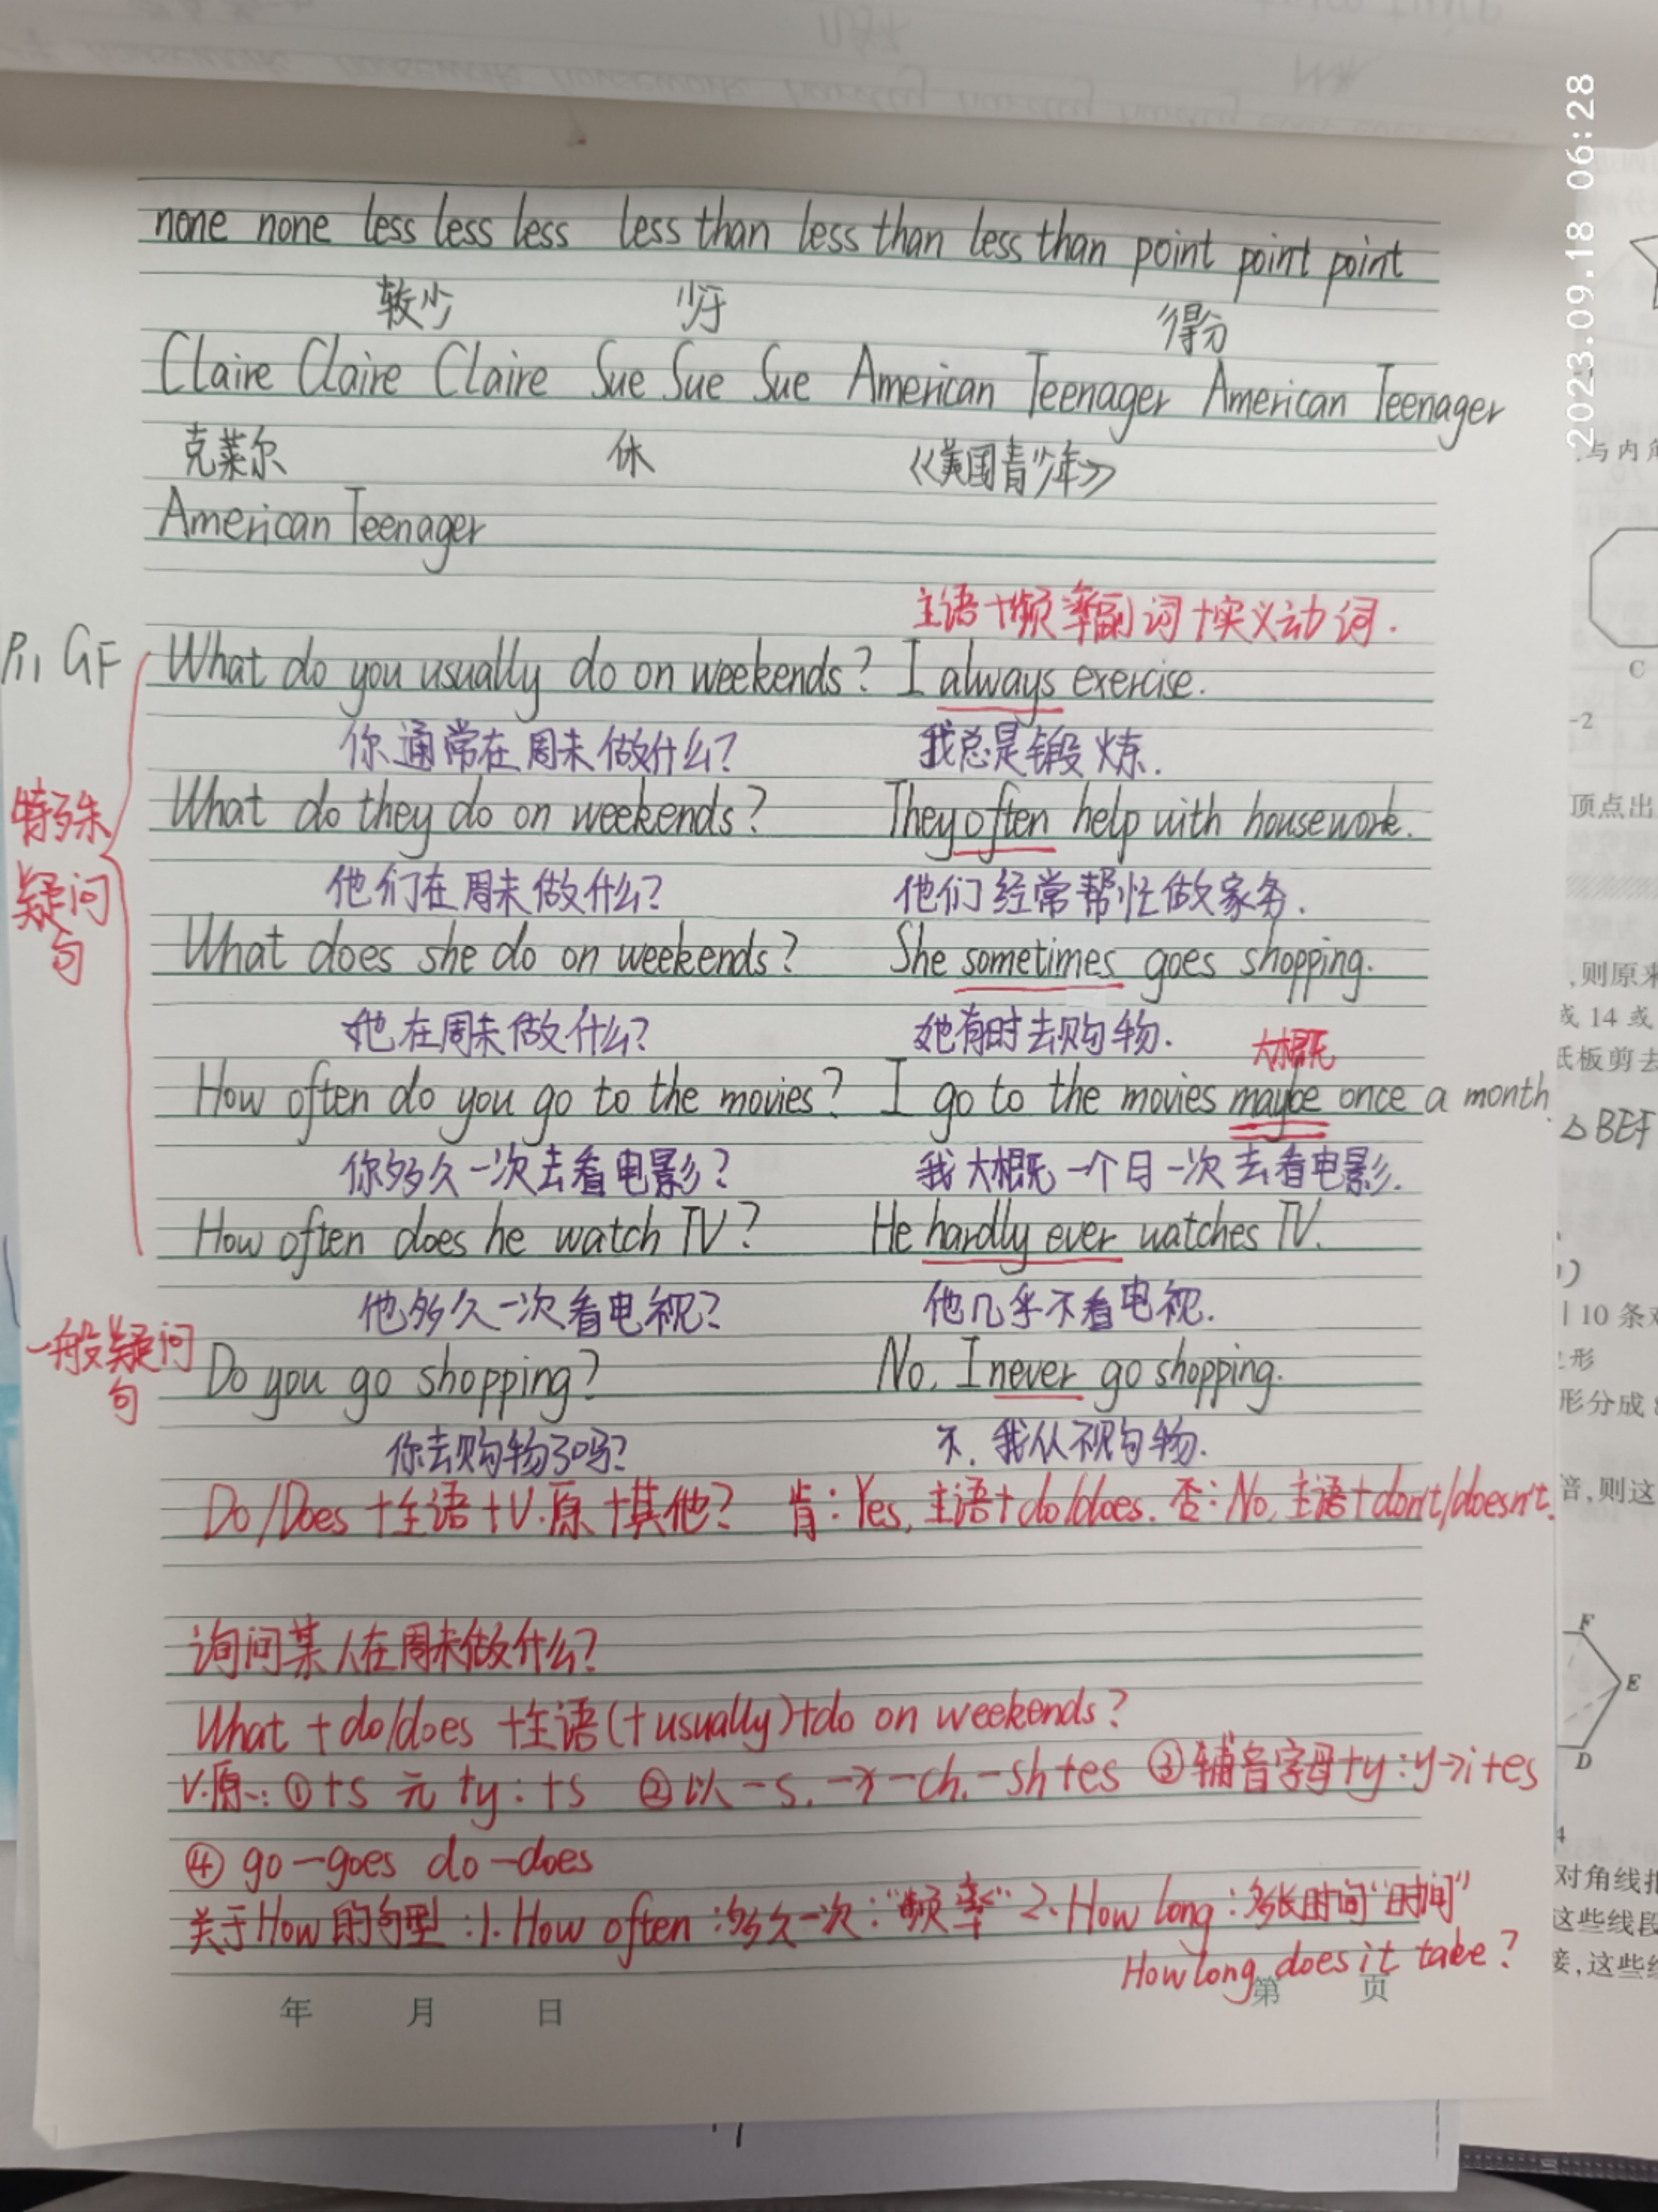 none none less less less less than less than less than point point point
较少 少于 得分
Claire Claire Claire Sue Sue Sue American Teenager American Teenager
克莱尔 休 《美国青少年》
American Teenager
主语+频率副词+实义动词.
P11 GF What do you usually do on weekends? I always exercise.
你通常在周末做什么? 我总是锻炼.
What do they do on weekends? They often help with housework.
特殊疑问句
他们在周末做什么? 他们经常帮忙做家务.
What does she do on weekends? She sometimes goes shopping.
她在周末做什么? 她有时去购物.
大概
How often do you go to the movies? I go to the movies maybe once a month.
你多久一次去看电影? 我大概一个月一次去看电影.
How often does he watch TV? He hardly ever watches TV.
他多久一次看电视? 他几乎不看电视.
一般疑问句
Do you go shopping? No, I never go shopping.
你去购物了吗? 不,我从不购物.
Do/Does+主语+V.原+其他? 肯:Yes,主语+do/does. 否:No,主语+don't/doesn't.
询问某人在周末做什么?
What+do/does+主语(+usually)+do on weekends?
V.原: ①+s 元+y:+s ②以-s.-x-ch.-sh+es ③辅音字母+y:y→i+es
④ go-goes do-does
关于How的句型:1.How often:多久一次:"频率" 2.How long:多长时间"时间"
How long does it take?
年 月 日 第 页
2023.09.18 06:28
与内角
C
-2
顶点出
,则原来
或 14 或
纸板剪去
△BEF
10 条对
形分成
倍,则这
F
E
D
对角线把
这些线段
接,这些线